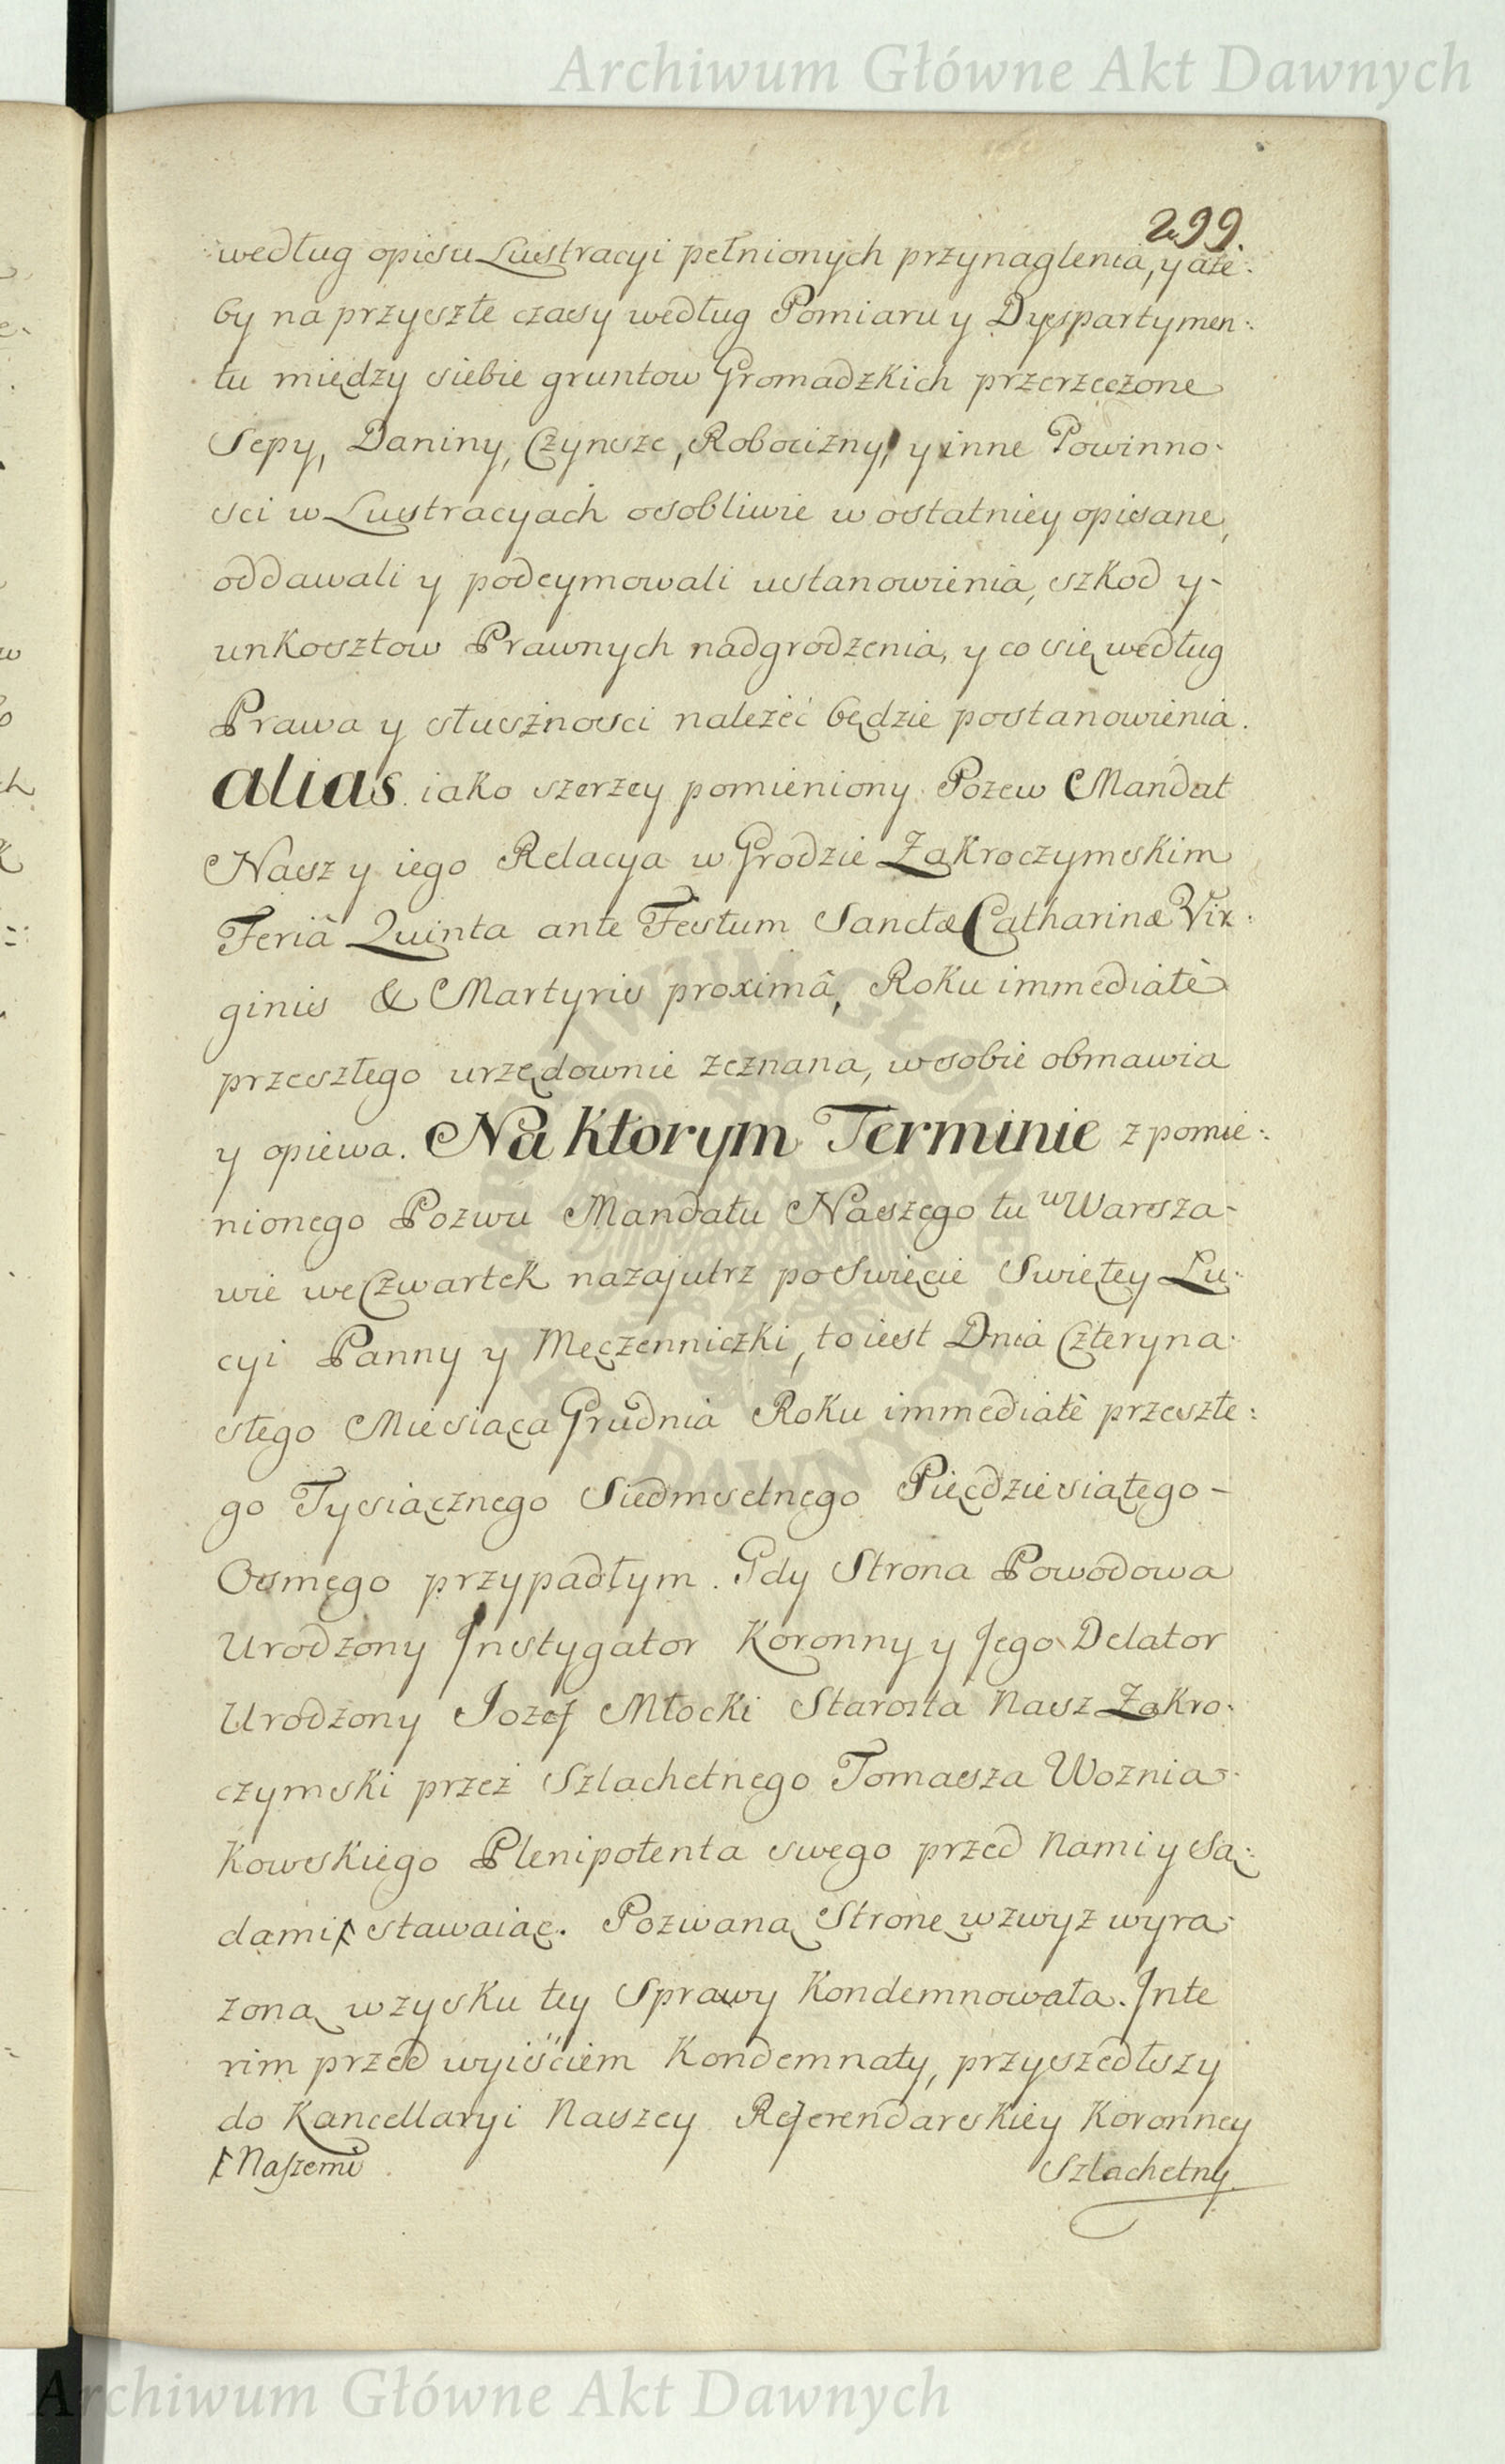 Archiwum Główne Akt Dawnych
299.
według opisu Lustracyi pełnionych przynaglenia, y aże:
by na przyszłe czasy według Pomiaru y Dyspartymen:
tu między siebie gruntow Gromadzkich przerzeczone
Sepy, Daniny, Czynsze, Robocizny, y inne Powinno-
sci w Lustracyach osobliwie w ostatniey opisane,
oddawali y podeymowali ustanowienia, szkod y-
unkosztow Prawnych nadgrodzenia, y co się według
Prawa y słusznosci należéć będzie postanowienia.
alias iako szerzey pomieniony Pozew Mandat
Nasz y iego Relacya w Grodzie Zakroczymskim
Feriâ Quinta ante Festum Sanctæ Catharinæ Vir:
ginis & Martyris proximâ, Roku immediatè
przeszłego urzędownie zeznana, w sobie obmawia
y opiewa. Na ktorym Terminie z pomie:
nionego Pozwu Mandatu Naszego tu w Warsza-
wie we Czwartek nazajutrz po Swięcie Swiętey Lu:
cyi Panny y Męczenniczki, to iest Dnia Czteryna-
stego Miesiąca Grudnia Roku immediatè przeszłe:
go Tysiącznego Siedmsetnego Pięcdziesiątego-
Osmego przypadłym. Gdy Strona Powodowa
Urodzony Instygator Koronny y Jego Delator
Urodzony Jozef Młocki Starosta Nasz Zakro-
czymski przez Szlachetnego Tomasza Woznia-
kowskiego Plenipotenta swego przed Nami y Są:
dami ƚ stawaiąc. Pozwaną Stronę wzwyz wyra-
zoną w zysku tey Sprawy Kondemnowała. Inte
rim przed wyiściem Kondemnaty, przyszedłszy
do Kancellaryi Naszey Referendarskiey Koronney
ƚ Naszemi
Szlachetny
ARCHIWUM GŁÓWNE AKT DAWNYCH
Archiwum Główne Akt Dawnych